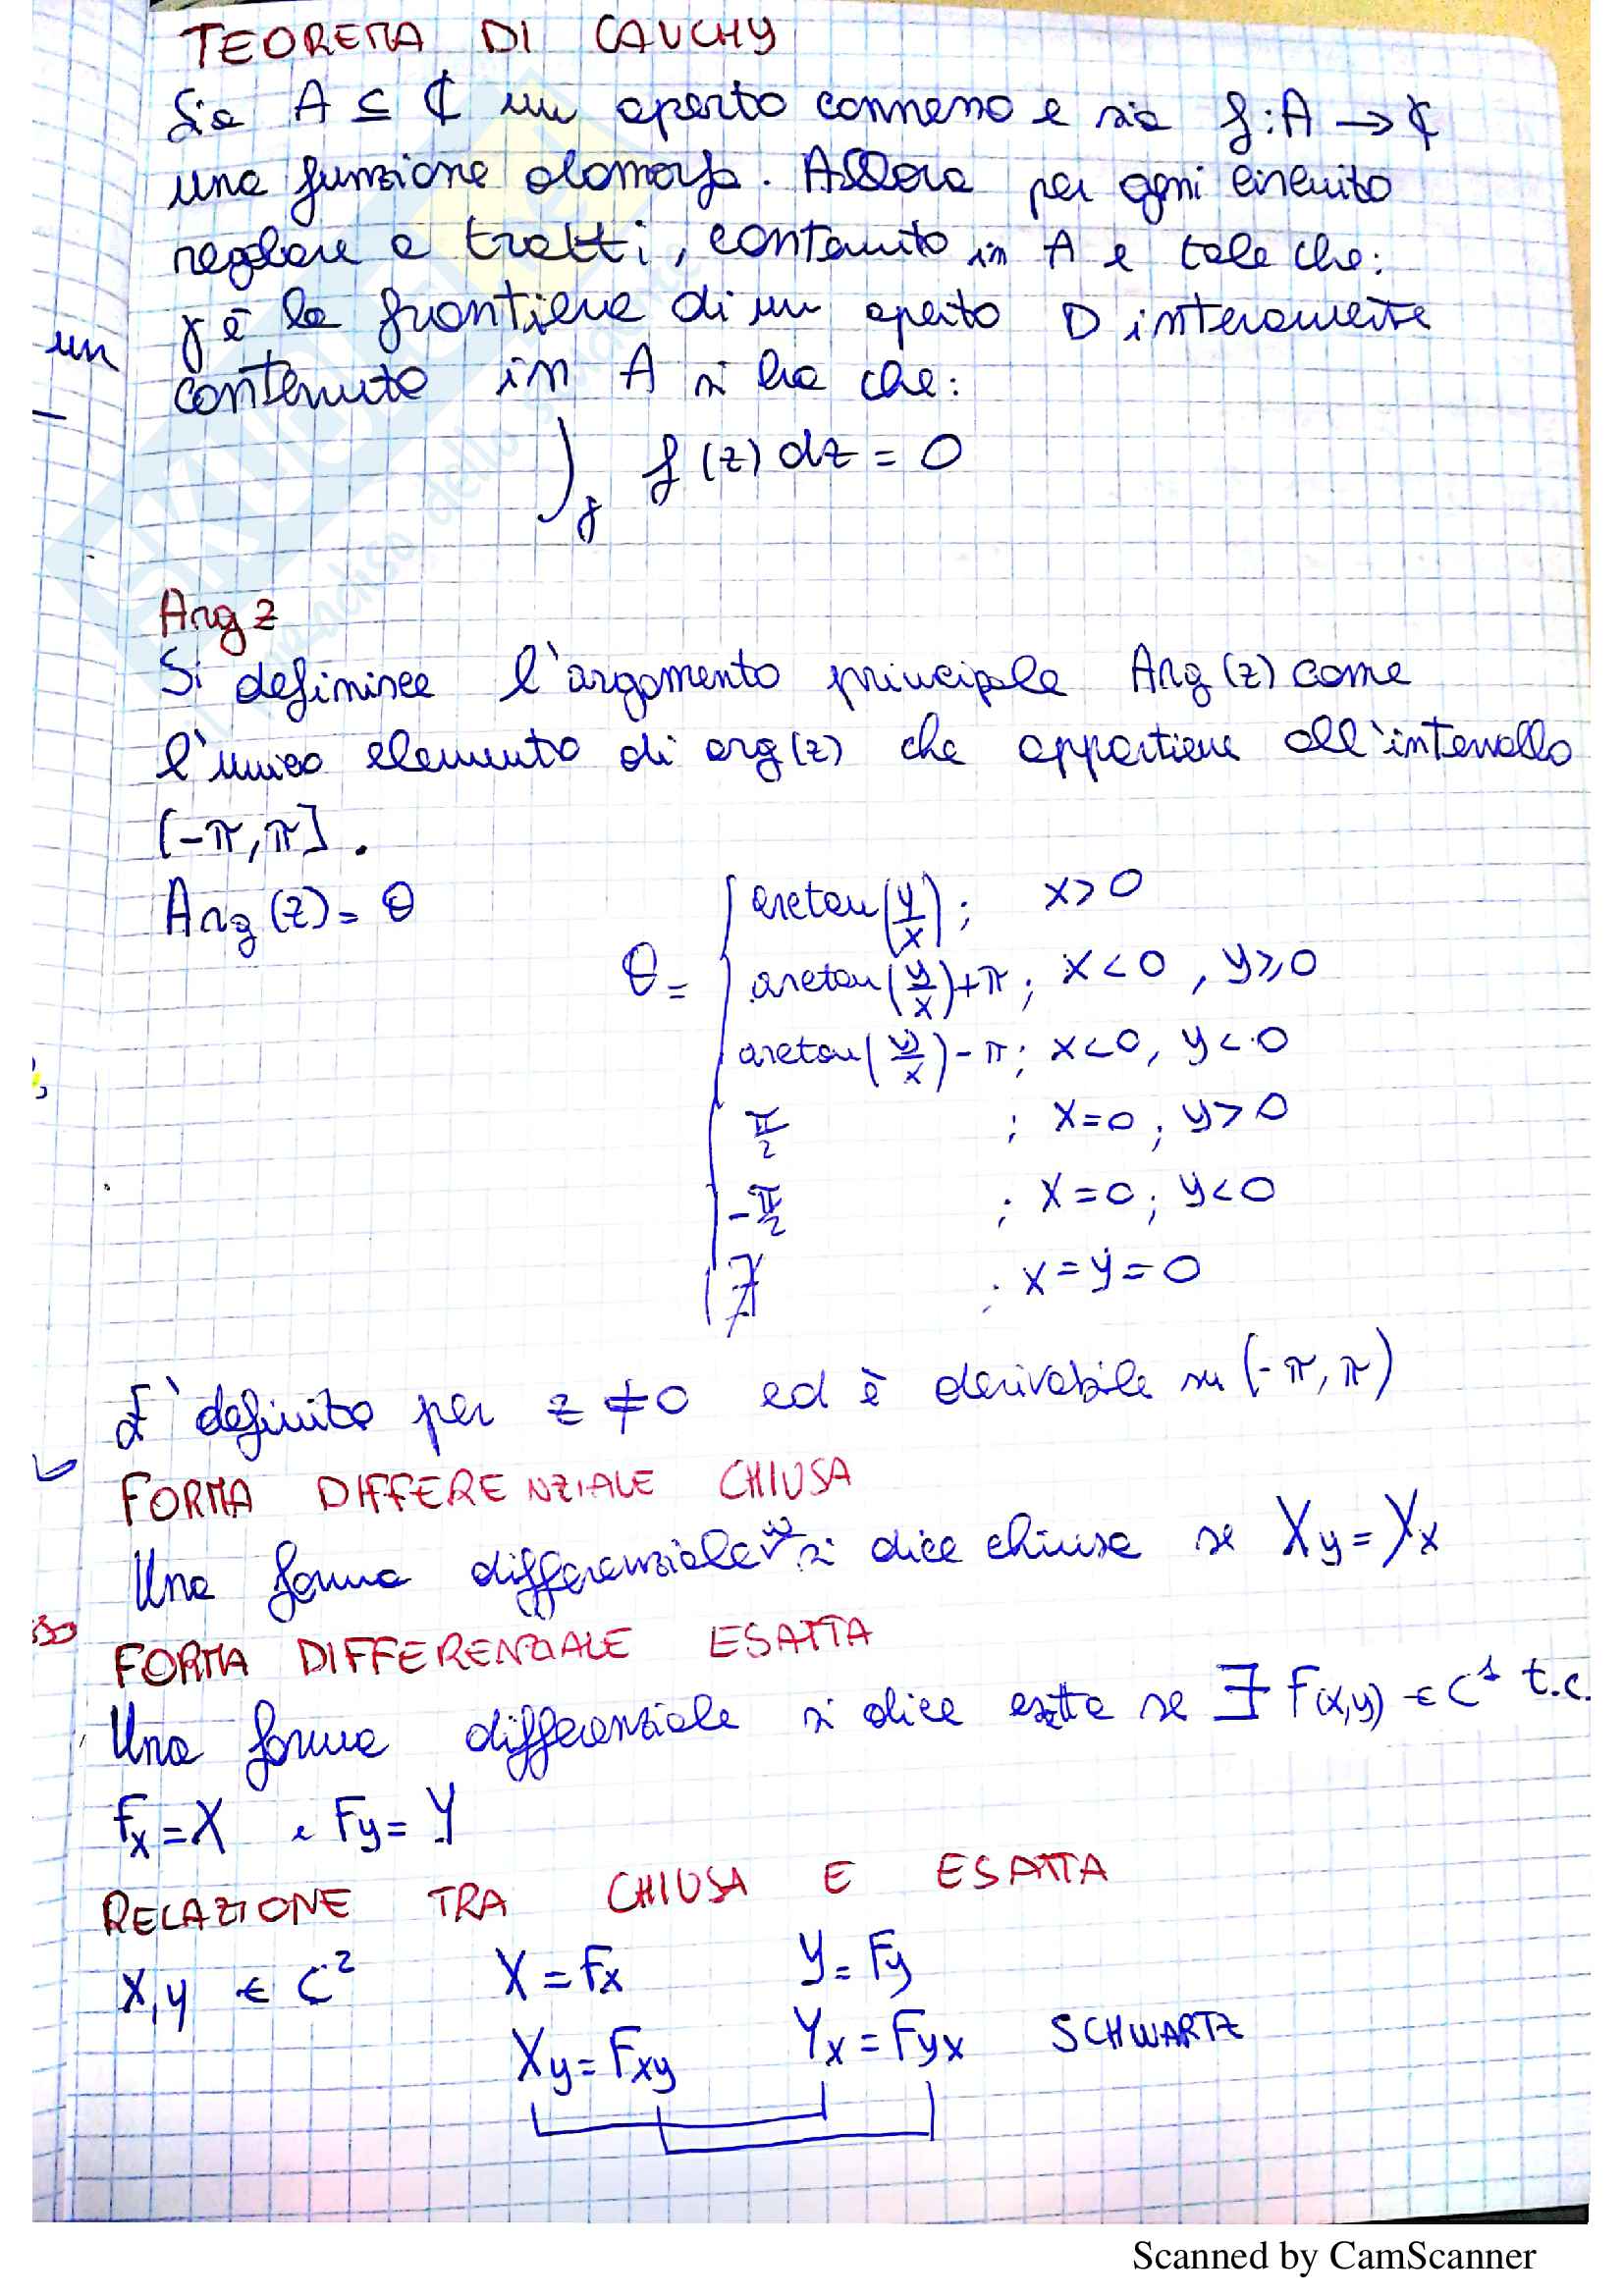 TEOREMA DI CAUCHY
Sia A ⊆ ℂ un aperto connesso e sia f: A → ℂ
una funzione olomorfa. Allora per ogni circuito
regolare a tratti, contenuto in A e tale che:
γ è la frontiera di un aperto D interamente
un
contenuto in A si ha che:
∫γ f(z) dz = 0
Arg z
Si definisce l'argomento principale Arg(z) come
l'unico elemento di arg(z) che appartiene all'intervallo
(-π, π].
Arg(z) = θ
θ = { arctan(y/x); x>0
arctan(y/x)+π; x<0, y≥0
arctan(y/x)-π; x<0, y<0
π/2 ; x=0; y>0
-π/2 ; x=0; y<0
∄ ; x=y=0
E' definito per z ≠ 0 ed è derivabile su (-π, π)
FORMA DIFFERENZIALE CHIUSA
Una forma differenziale ω si dice chiusa se Xy = Yx
FORMA DIFFERENZIALE ESATTA
Una forma differenziale si dice esatta se ∃ F(x,y) ∈ C¹ t.c.
Fx = X e Fy = Y
RELAZIONE TRA CHIUSA E ESATTA
X, y ∈ C² X = Fx Y = Fy
Xy = Fxy Yx = Fyx SCHWARTZ
Scanned by CamScanner